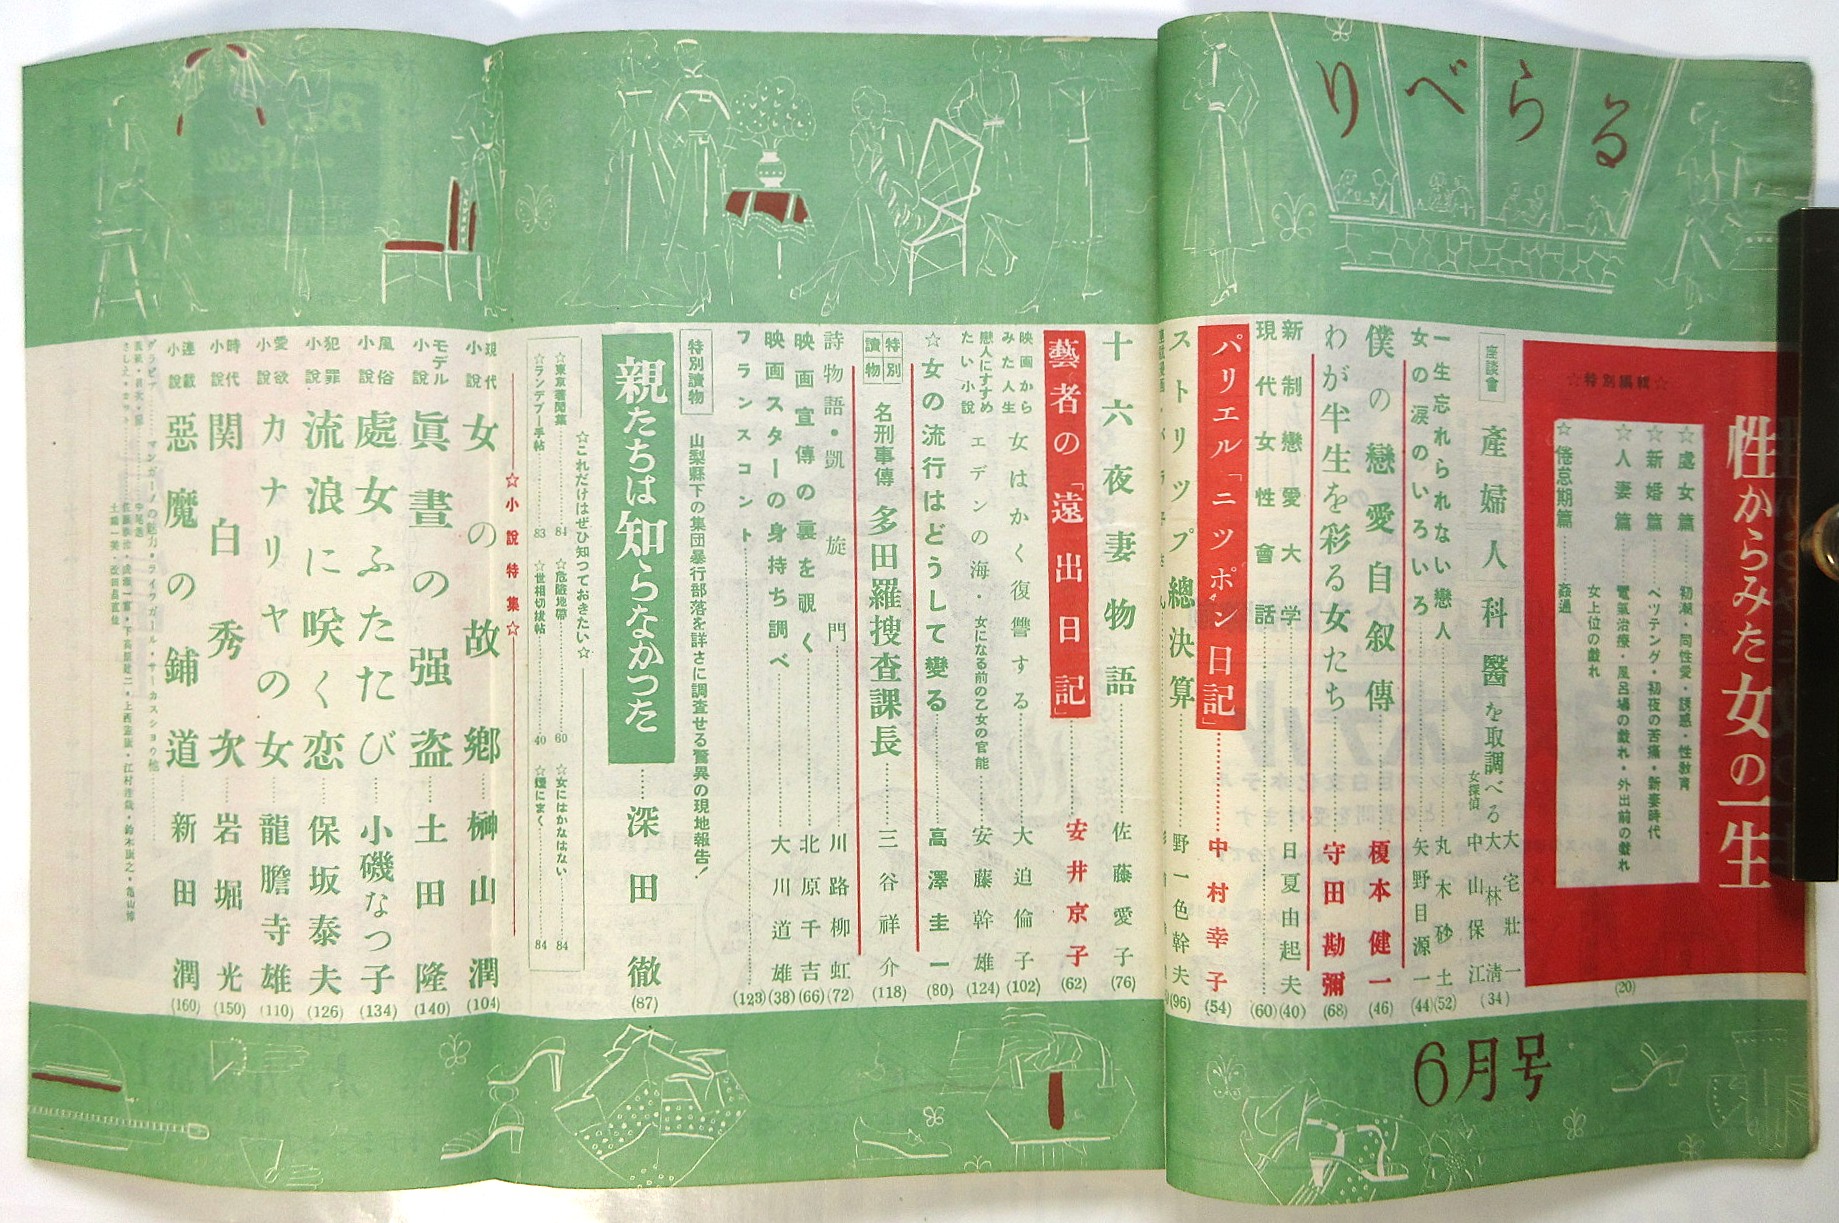 りべらる
6月号
性からみた女の一生
☆特別編輯☆
☆處女篇……初潮・同性愛・誘惑・性教育
☆新婚篇……ペツテング・初夜の苦痛・新妻時代
☆人妻篇……電氣治療・風呂場の戯れ・外出前の戯れ
女上位の戯れ
☆倦怠期篇……姦通
(20)
座談會
產婦人科醫を取調べる
女探偵
大宅壯一
大林清
中山保江
(34)
一生忘れられない戀人……丸木砂土(52)
女の涙のいろいろ……矢野目源一(44)
僕の戀愛自叙傳……榎本健一(46)
わが半生を彩る女たち……守田勘彌(68)
新制戀愛大学……日夏由起夫(40)
現代女性會話……(60)
パリエル「ニツポン日記」……中村幸子(54)
ストリツプ總決算……野一色幹夫(96)
十六夜妻物語……佐藤愛子(76)
藝者の「遠出日記」……安井京子(62)
映画からみた人生 女はかく復讐する……大迫倫子(102)
戀人にすすめたい小說 エデンの海・女になる前の乙女の官能……安藤幹雄(124)
☆女の流行はどうして變る……高澤圭一(80)
特別讀物 名刑事傳 多田羅捜査課長……三谷祥介(118)
詩物語・凱旋門……川路柳虹(72)
映画宣傳の裏を覗く……北原千吉(66)
映画スターの身持ち調べ……大川道雄(38)
フランスコント……(123)
特別讀物 山梨縣下の集団暴行部落を詳さに調査せる驚異の現地報告!
親たちは知らなかつた……深田徹(87)
☆これだけはぜひ知つておきたい☆
☆東京著聞集……84 ☆危險地帶……60 ☆女にはかなはない……84
☆ランデブー手帖……83 ☆世相切拔帖……40 ☆煙にまく……84
☆小說特集☆
現代小說 女の故鄉……榊山潤(104)
モデル小說 眞晝の强盗……土田隆(140)
風俗小說 處女ふたたび……小磯なつ子(134)
犯罪小說 流浪に咲く恋……保坂泰夫(126)
愛欲小說 カナリヤの女……龍膽寺雄(110)
時代小說 関白秀次……岩堀光(150)
連載小說 惡魔の鋪道……新田潤(160)